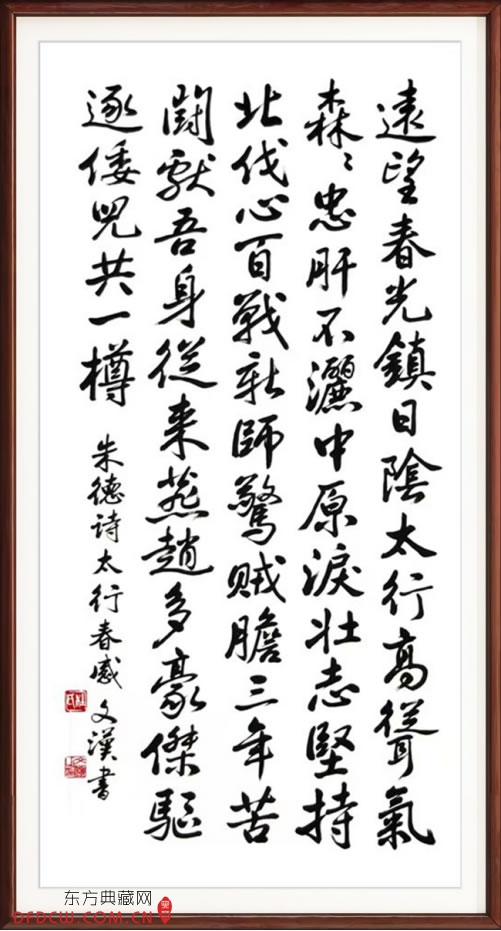 遠望春光鎮日陰太行高聳氣
森々忠肝不灑中原淚壯志堅持
北伐心百戰新師驚賊膽三年苦
鬪獻吾身從来燕趙多豪傑驅
逐倭兒共一樽
朱德诗太行春感 文漢書
东方典藏网
DFDCW.COM.CN